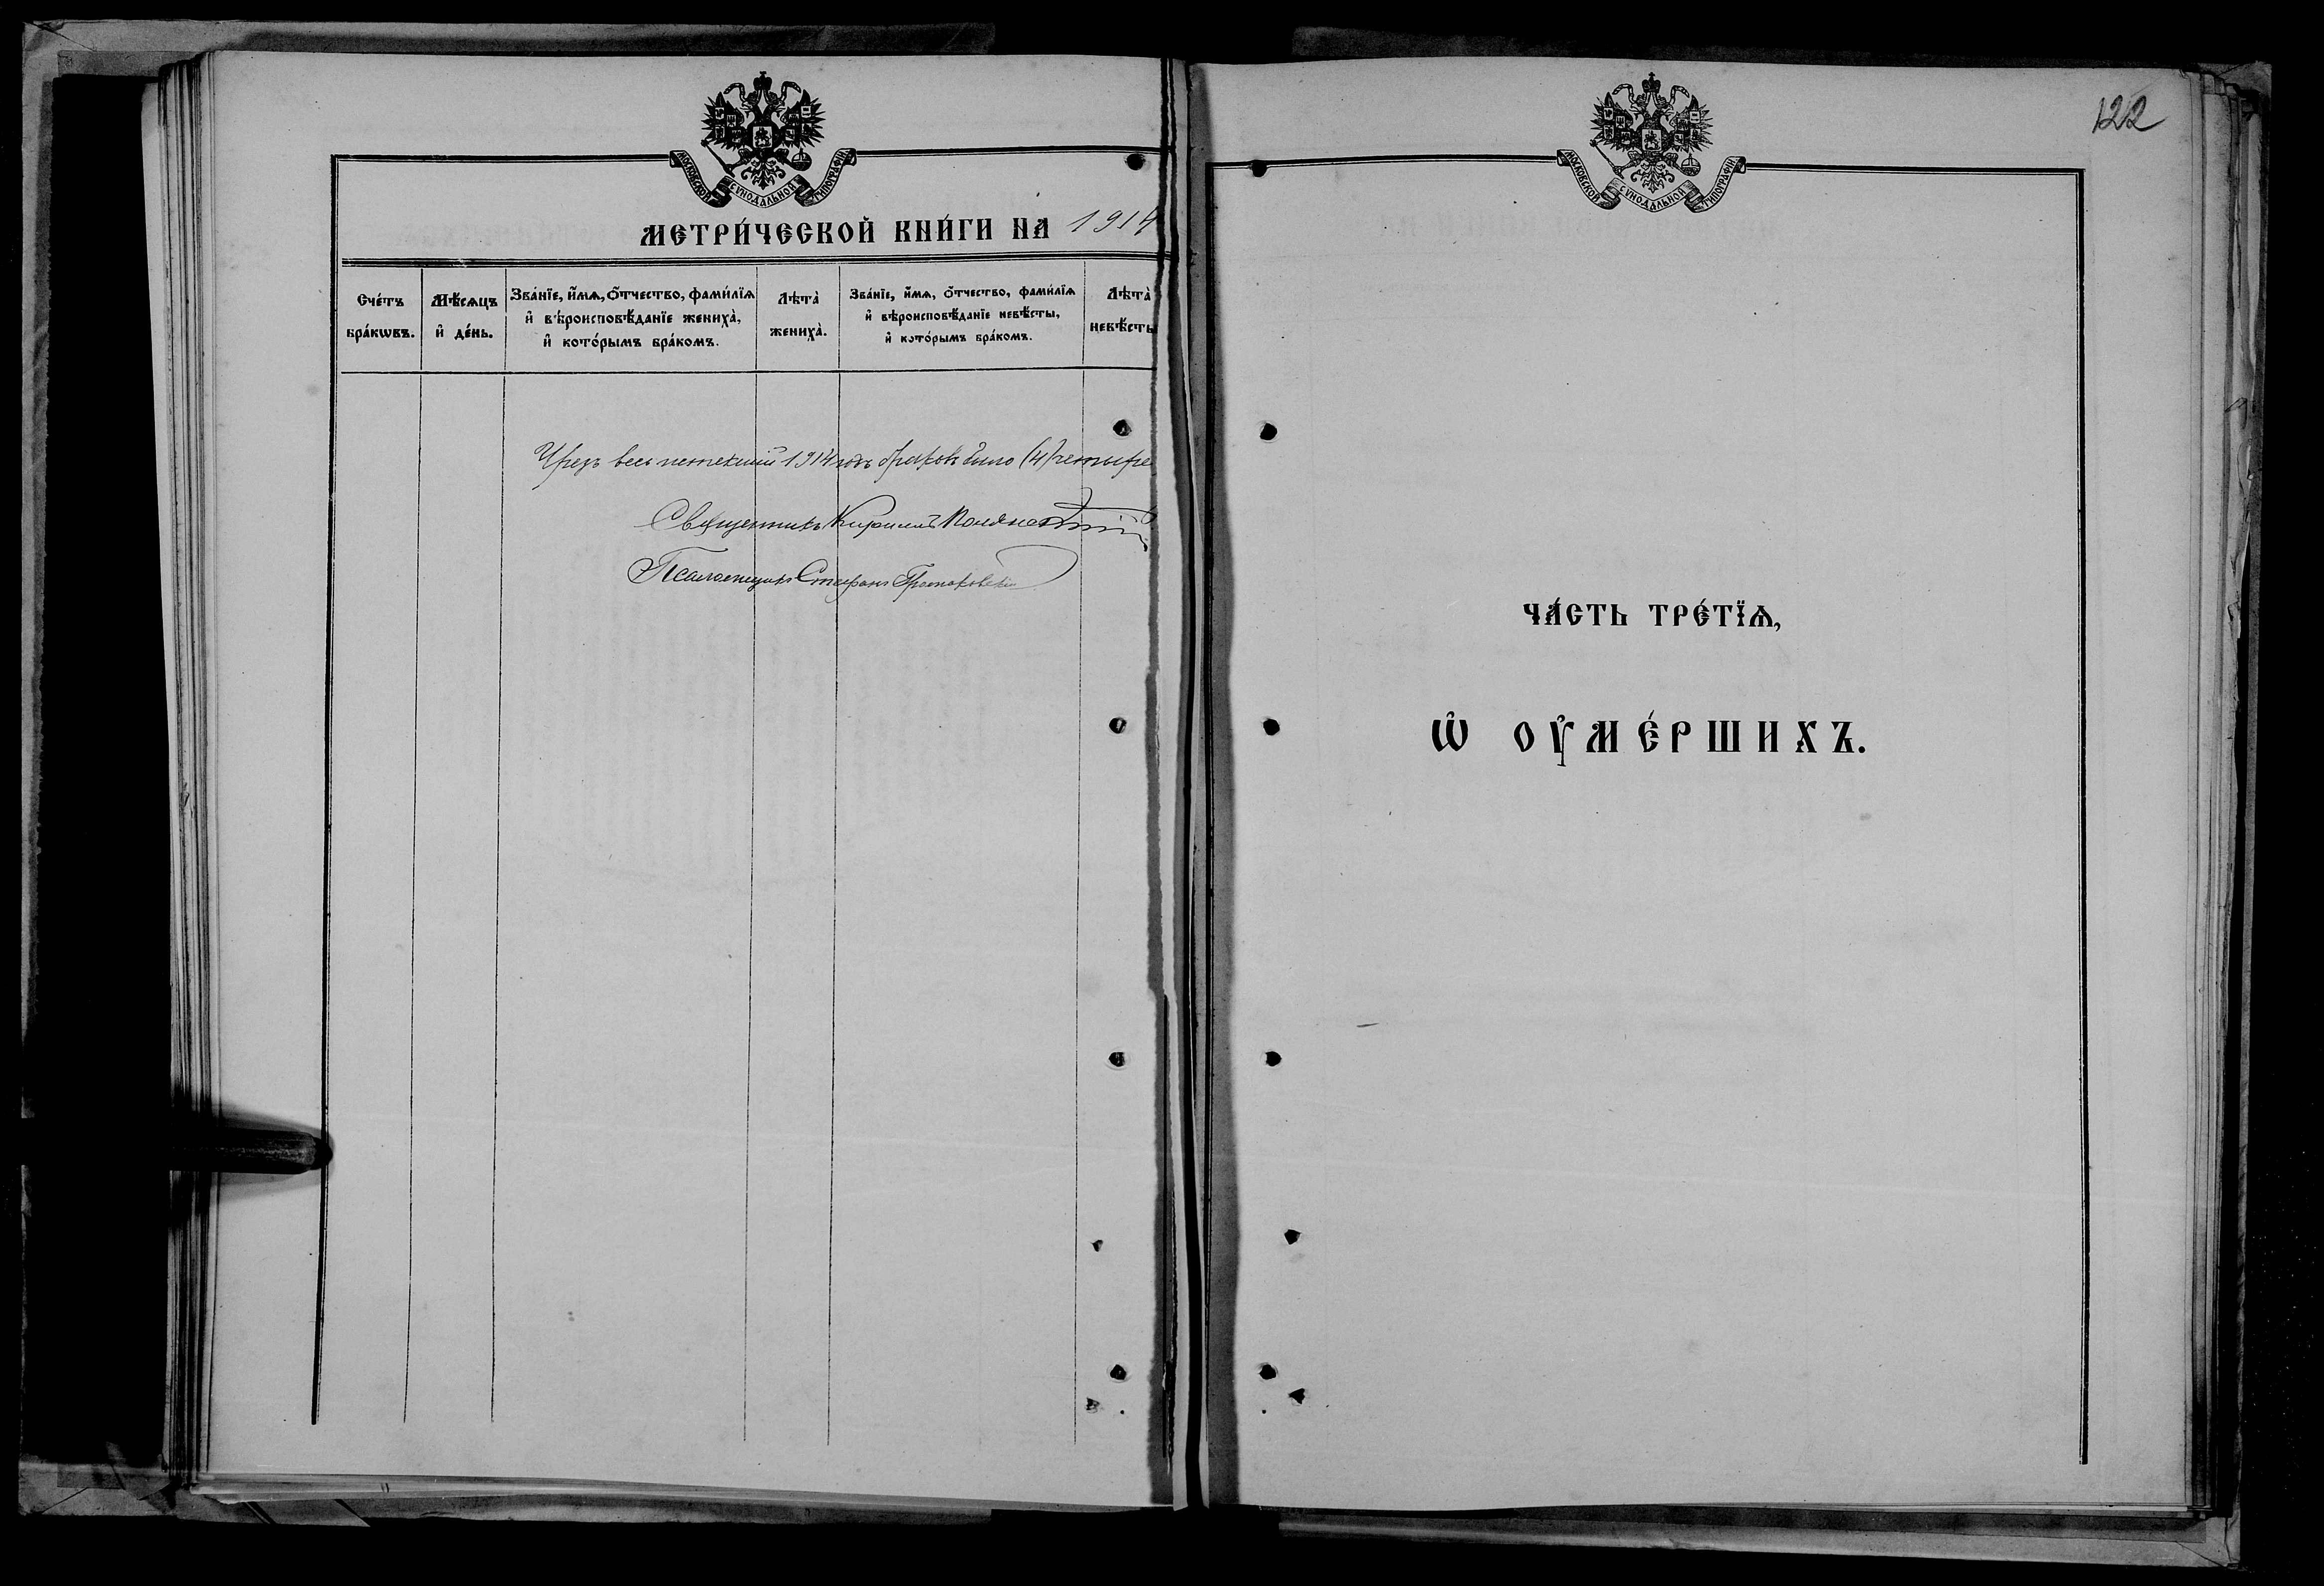 МОСКОВСКОЙ СѴНОДАЛЬНОЙ ТИПОГРАФІИ
МЕТРИ́ЧЕСКОЙ КНИ́ГИ НА 1914
Сче́тъ бра́кѡвъ.
Мѣ́сѧцъ и҆ де́нь.
Зва́нїе, и҆́мѧ, ѻ҆́тчество, фами́лїѧ
и҆ вѣроисповѣ́данїе жениха̀,
и҆ кото́рымъ бра́комъ.
Лѣта̀ жениха̀.
Зва́нїе, и҆́мѧ, ѻ҆́тчество, фами́лїѧ
и҆ вѣроисповѣ́данїе невѣ́сты,
и҆ кото́рымъ бра́комъ.
Лѣта̀ невѣ́сты
Чрезъ весь истекший 1914 годъ браковъ было (4) четыре
Священникъ Кириллъ
Псаломщикъ Стефанъ
122
МОСКОВСКОЙ СѴНОДАЛЬНОЙ ТИПОГРАФІИ
ЧА́СТЬ ТРЕ́ТЇѦ,
Ѡ҆ ОУ҆МЕ́РШИХЪ.